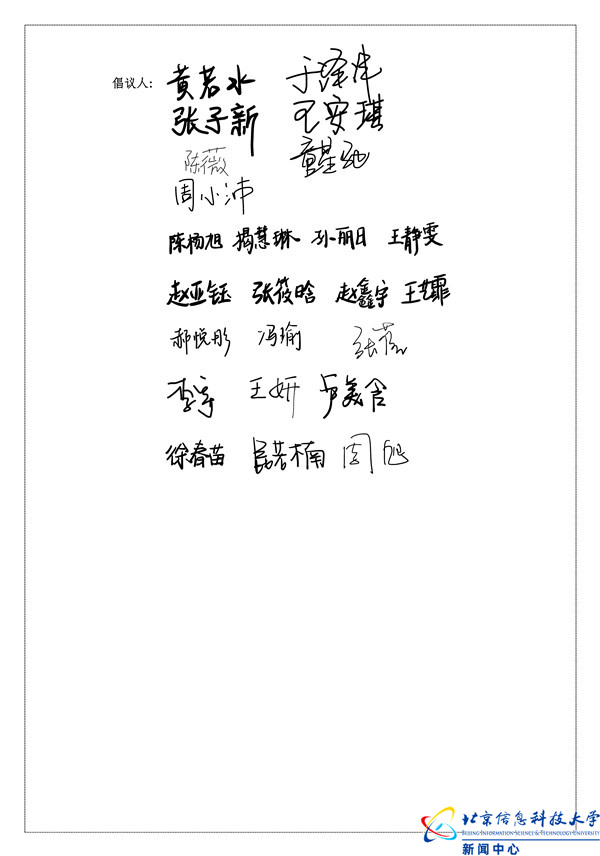 倡议人: 黄若水 于泽
张子新 王安琪
陈薇 童星驰
周小沛
陈杨旭 揭慧琳 孙丽日 王静雯
赵亚钰 张筱晗 赵鑫宇 王 霏
郝悦彤 冯瑜 张
李宇 王妍 卢美含
徐春苗 若楠 周旭
北京信息科技大学
BEIJING INFORMATION SCIENCE & TECHNOLOGY UNIVERSITY
新闻中心